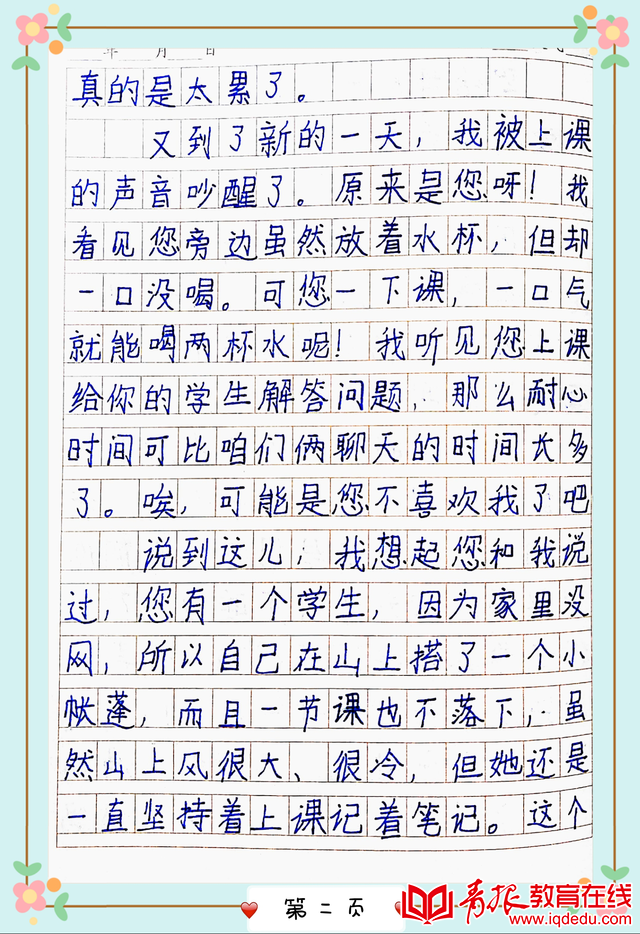 年 月 日
真的是太累了。
又到了新的一天，我被上课
的声音吵醒了。原来是您呀！我
看见您旁边虽然放着水杯，但却
一口没喝。可您一下课，一口气
就能喝两杯水呢！我听见您上课
给你的学生解答问题，那么耐心
时间可比咱们俩聊天的时间长多
了。唉，可能是您不喜欢我了吧
说到这儿，我想起您和我说
过，您有一个学生，因为家里没
网，所以自己在山上搭了一个小
帐蓬，而且一节课也不落下，虽
然山上风很大、很冷，但她还是
一直坚持着上课记着笔记。这个
第二页
青报教育在线
www.iqdedu.com